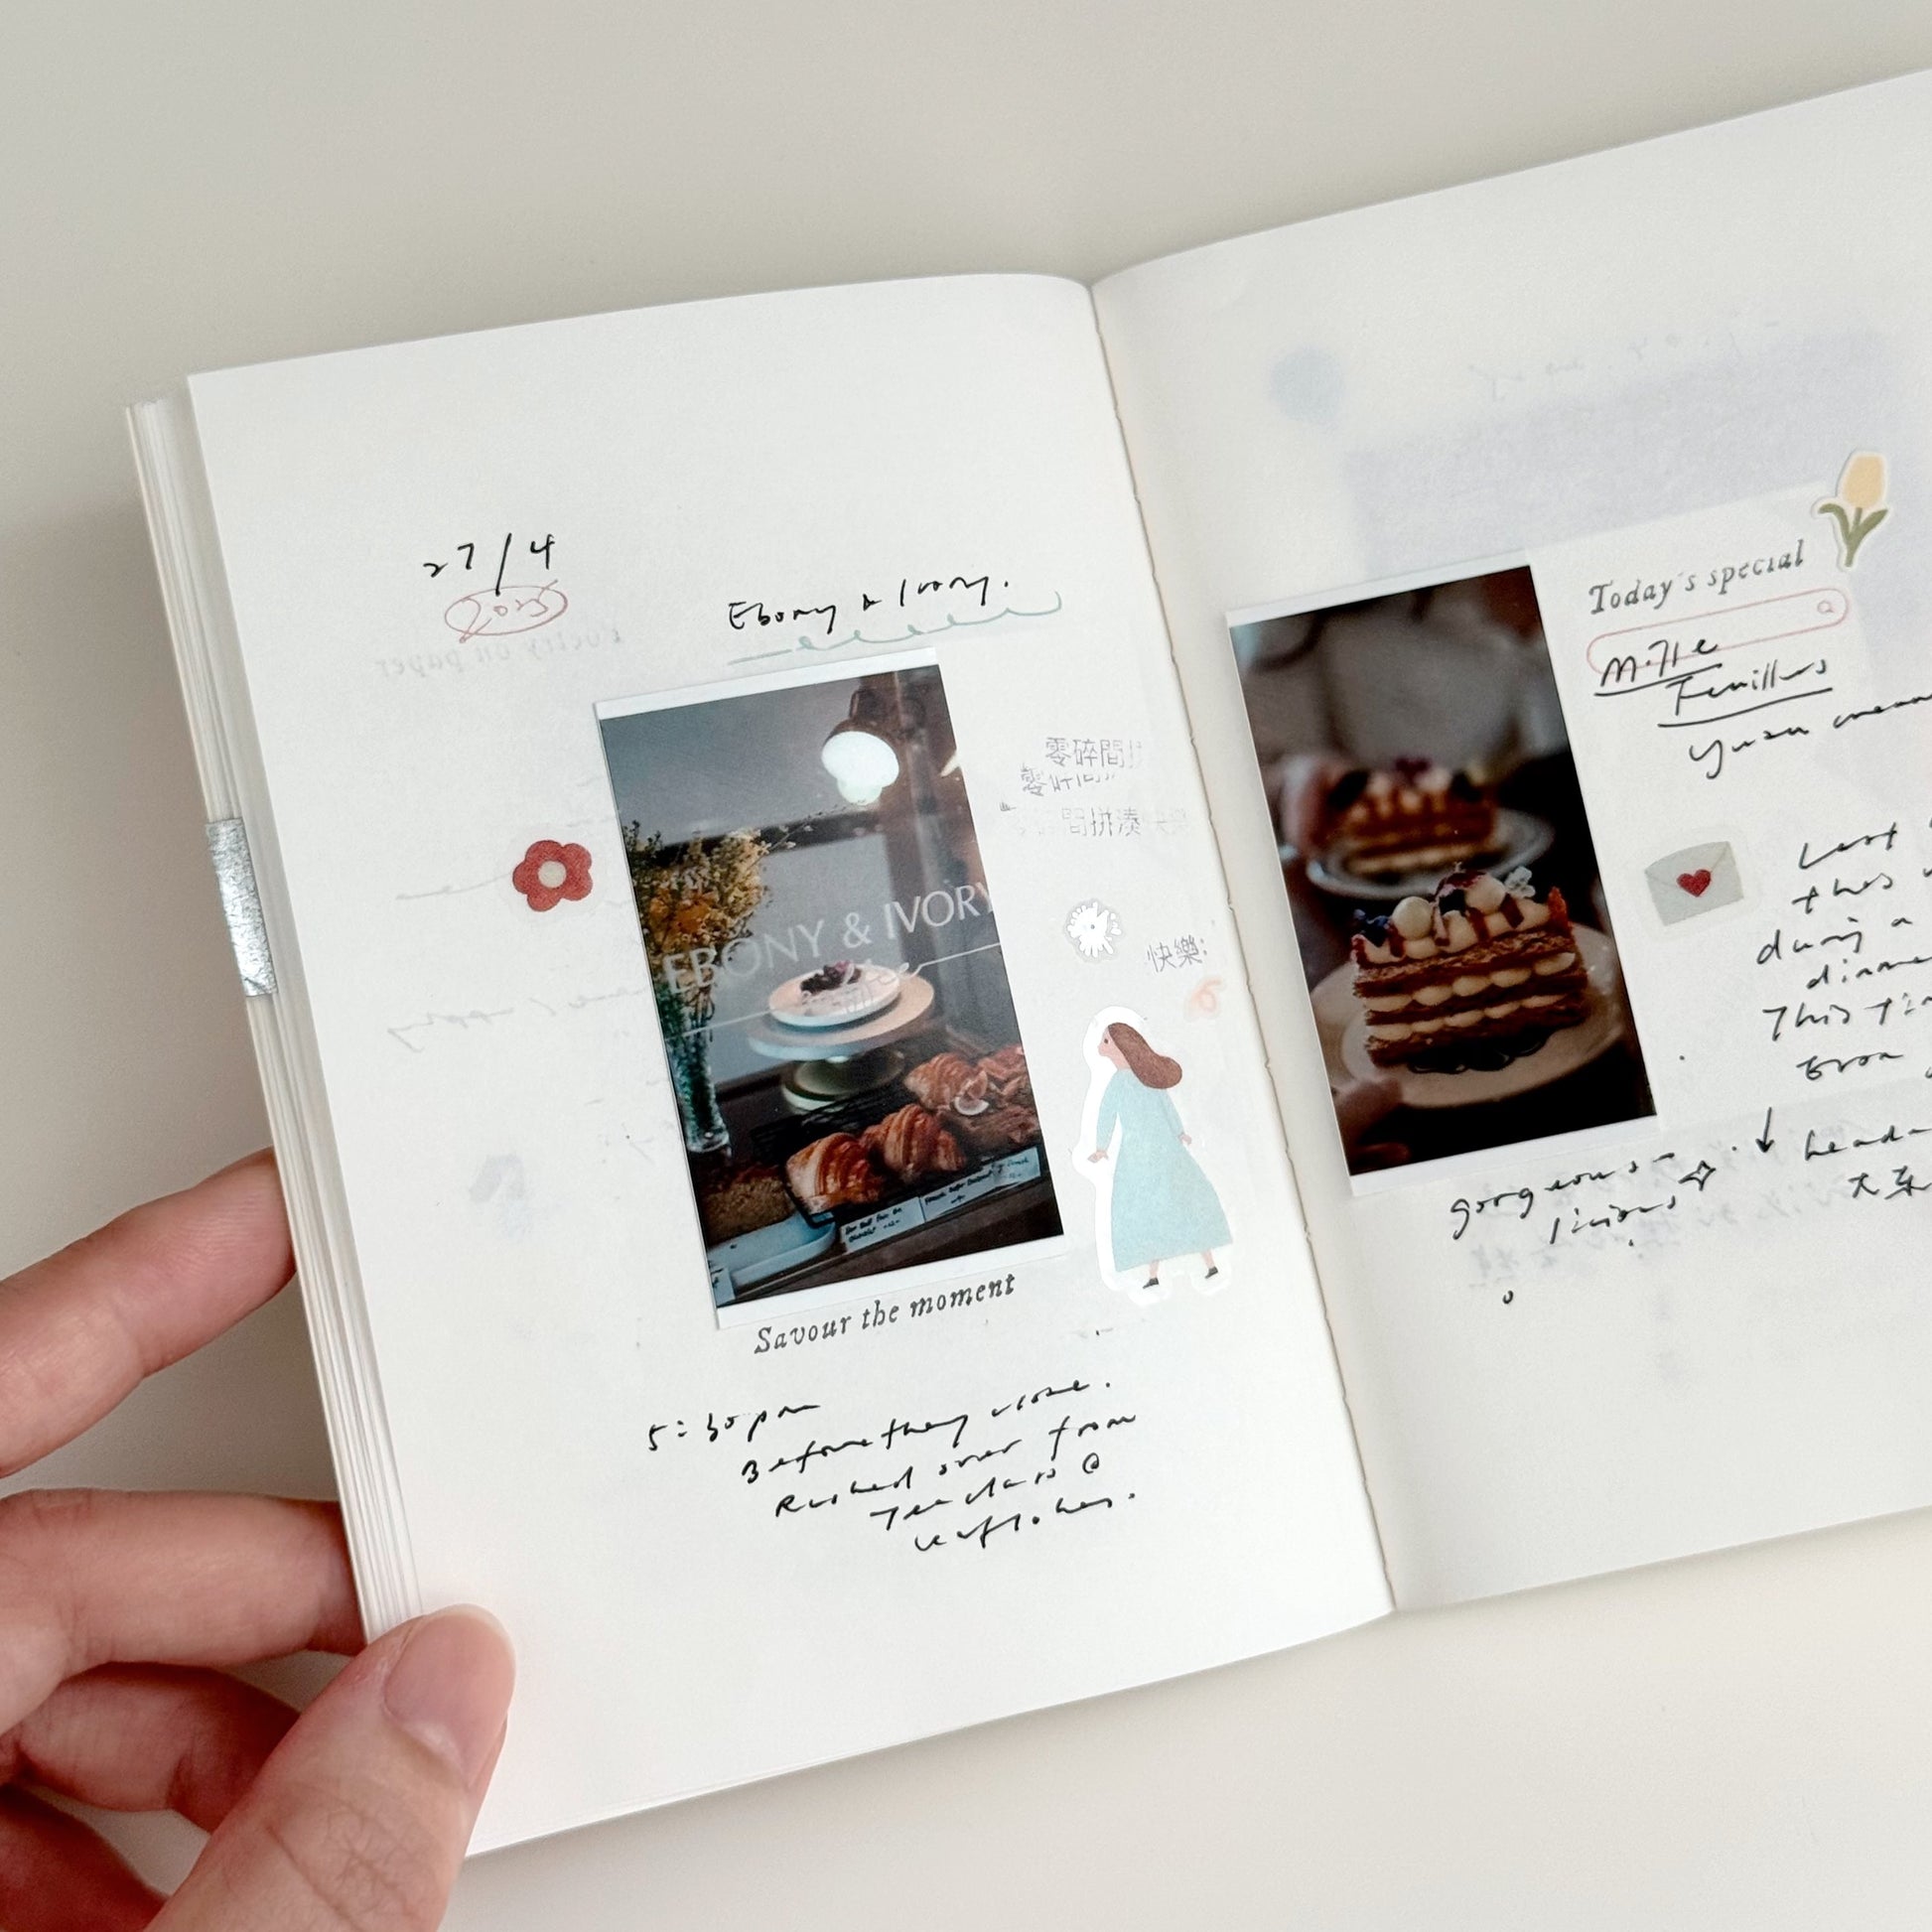 27/4
2025
Ebony & Ivory.
零碎間拼
零碎間
間拼湊快樂
EBONY & IVORY
快樂
Savour the moment
5:30pm
Before they close.
Rushed over from
Tea class @
Today's special
Mille
Feuilles
yuzu
Last
this
during a
dinne
This ti
from
gorgeous-
licious
heada
大家